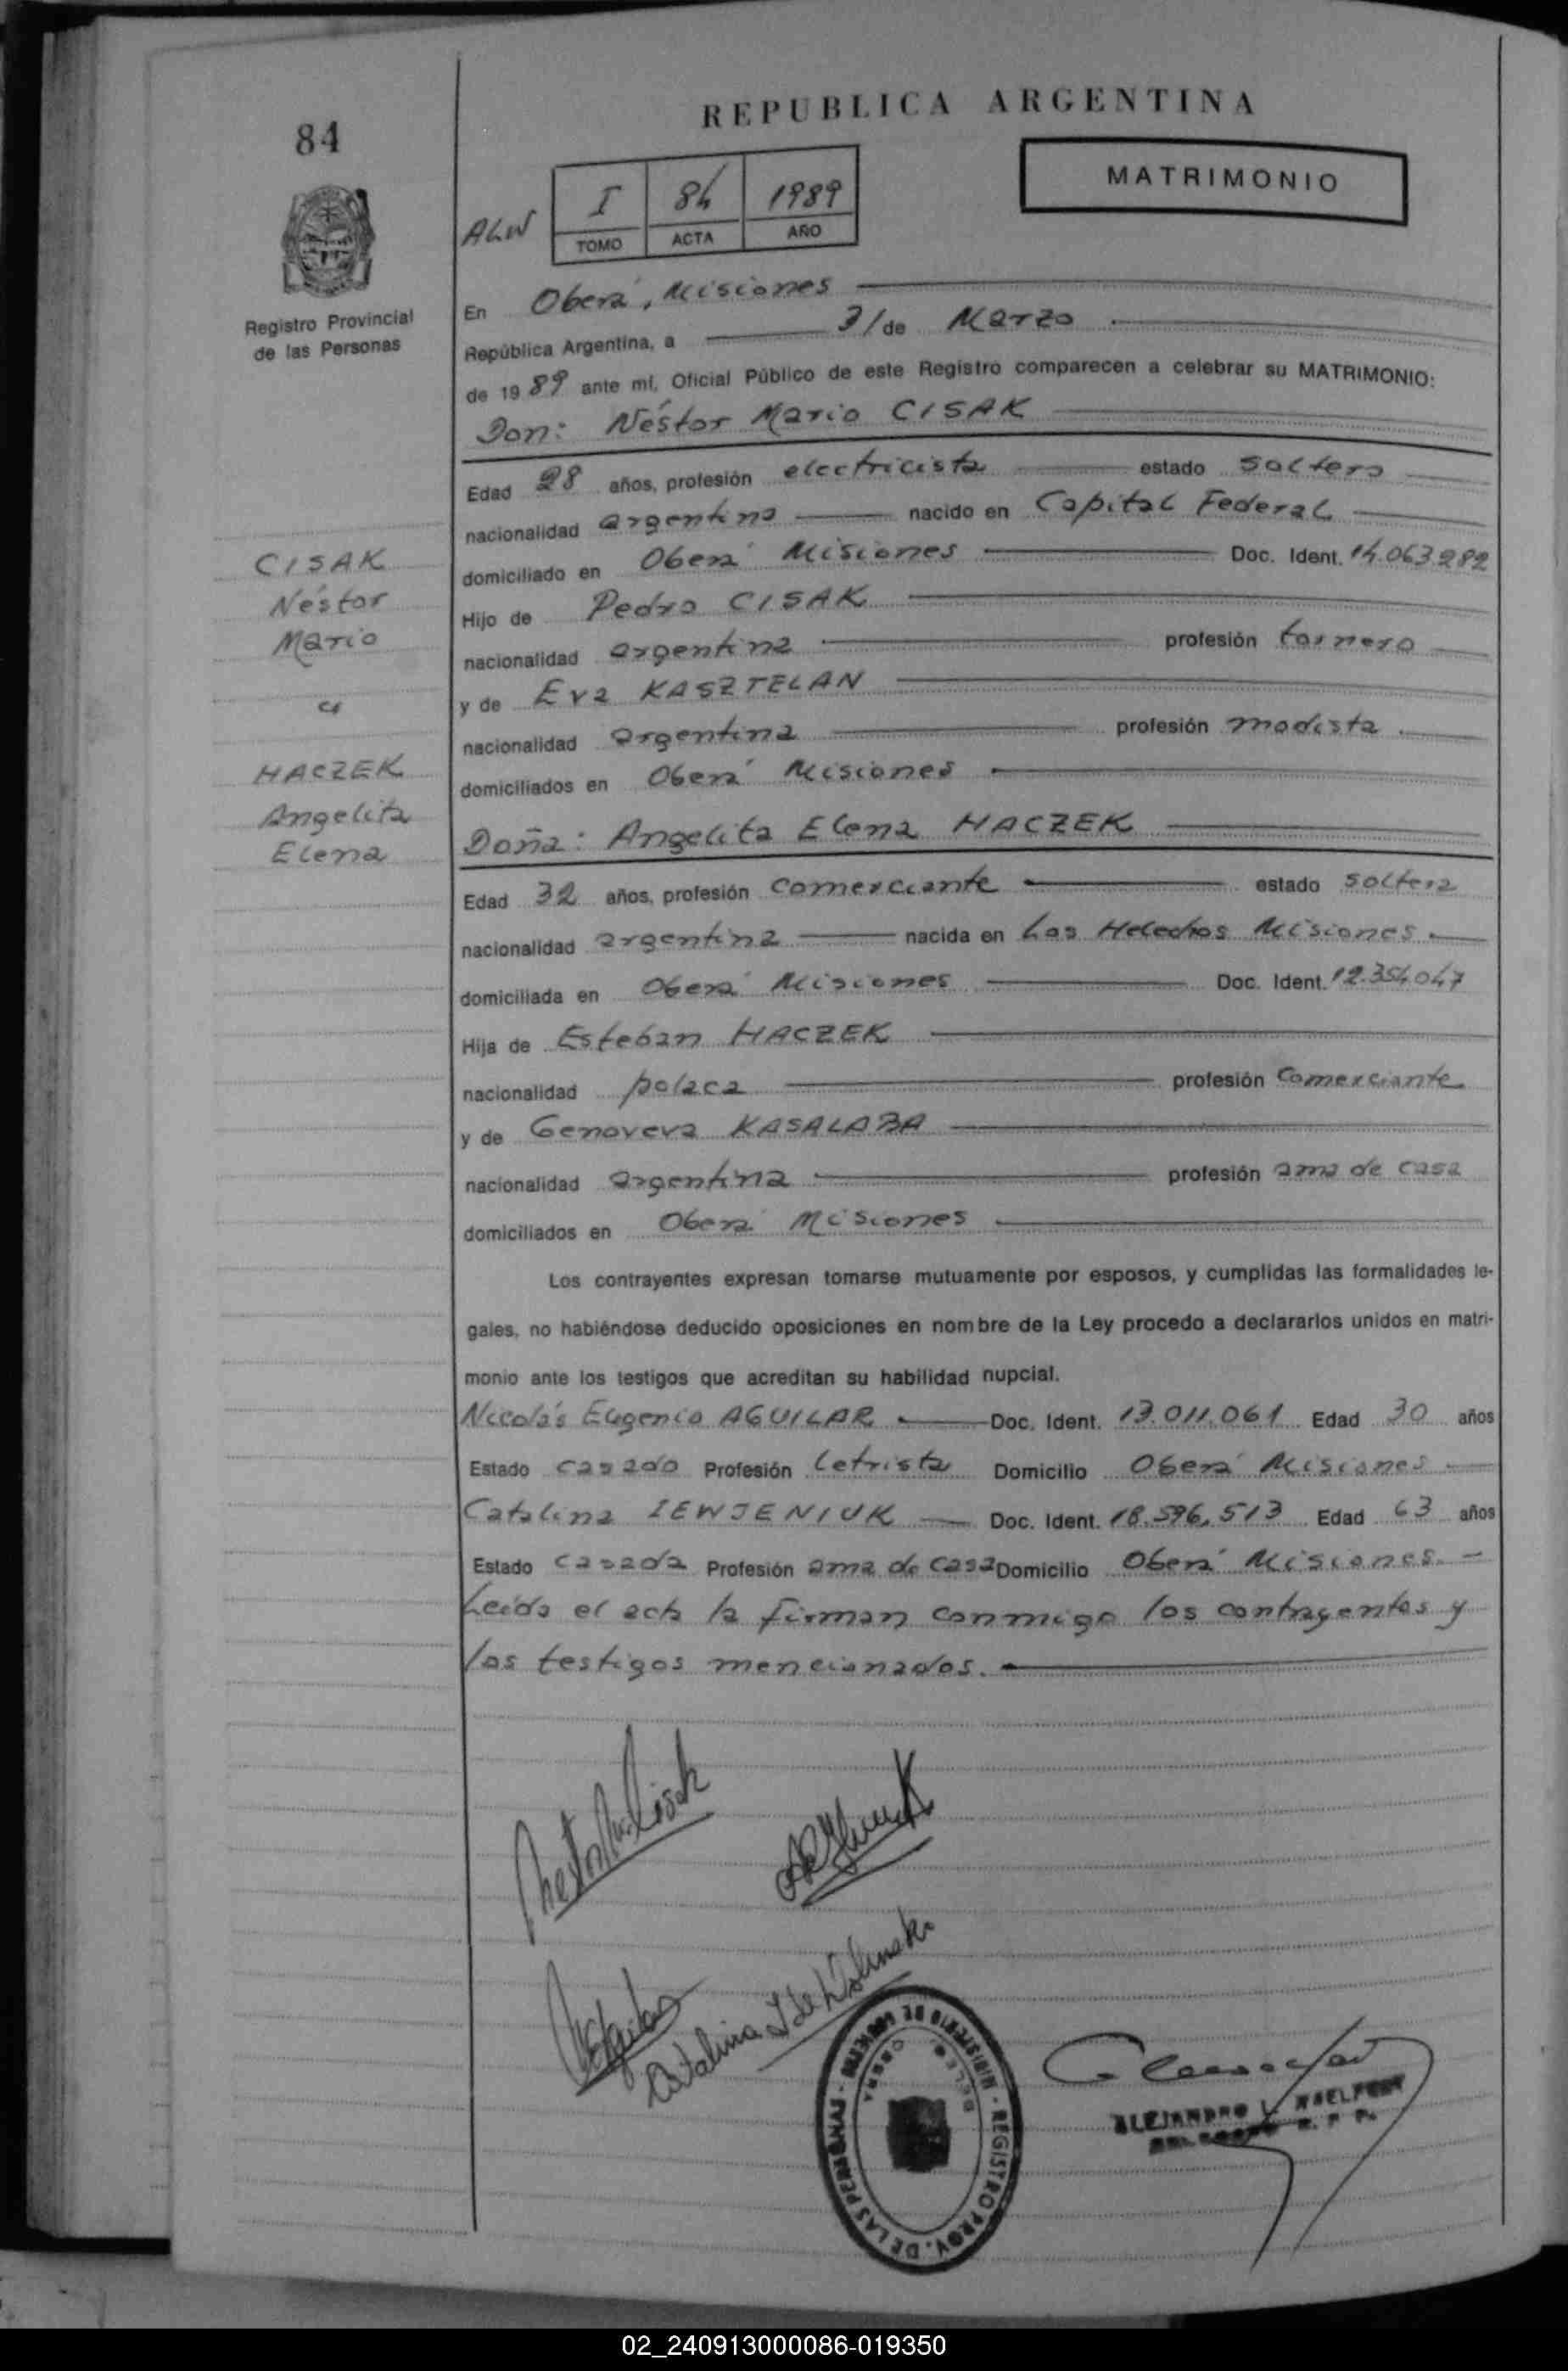 84
REPUBLICA ARGENTINA
MATRIMONIO
ALW
I 84 1989
TOMO ACTA AÑO
Registro Provincial
de las Personas
En Oberá, Misiones
República Argentina, a 31 de Marzo
de 1989 ante mí, Oficial Público de este Registro comparecen a celebrar su MATRIMONIO:
Don: Néstor Mario CISAK
Edad 28 años, profesión electricista estado soltero
nacionalidad argentina nacido en Capital Federal
domiciliado en Oberá Misiones Doc. Ident. 14.063.282
Hijo de Pedro CISAK
nacionalidad argentina profesión tornero
y de Eva KASZTELAN
nacionalidad argentina profesión modista
domiciliados en Oberá Misiones
CISAK
Néstor
Mario
c/
HACZEK
Angelita
Elena
Doña: Angelita Elena HACZEK
Edad 32 años, profesión comerciante estado soltera
nacionalidad argentina nacida en Los Helechos Misiones
domiciliada en Oberá Misiones Doc. Ident. 12.354.047
Hija de Esteban HACZEK
nacionalidad polaca profesión comerciante
y de Genoveva KASALABA
nacionalidad argentina profesión ama de casa
domiciliados en Oberá Misiones
Los contrayentes expresan tomarse mutuamente por esposos, y cumplidas las formalidades le-
gales, no habiéndose deducido oposiciones en nombre de la Ley procedo a declararlos unidos en matri-
monio ante los testigos que acreditan su habilidad nupcial.
Nicolás Eugenio AGUILAR Doc. Ident. 13.011.061 Edad 30 años
Estado casado Profesión letrista Domicilio Oberá Misiones
Catalina IEWJENIUK Doc. Ident. 18.596.513 Edad 63 años
Estado casada Profesión ama de casa Domicilio Oberá Misiones.
Leída el acta la firman conmigo los contrayentes y
los testigos mencionados.
Nestor M. Cisak
Catalina I de Wolinski
MINISTERIO DE GOBIERNO - REGISTRO PROV. DE LAS PERSONAS
OBERA
ALEJANDRO L.
02_240913000086-019350